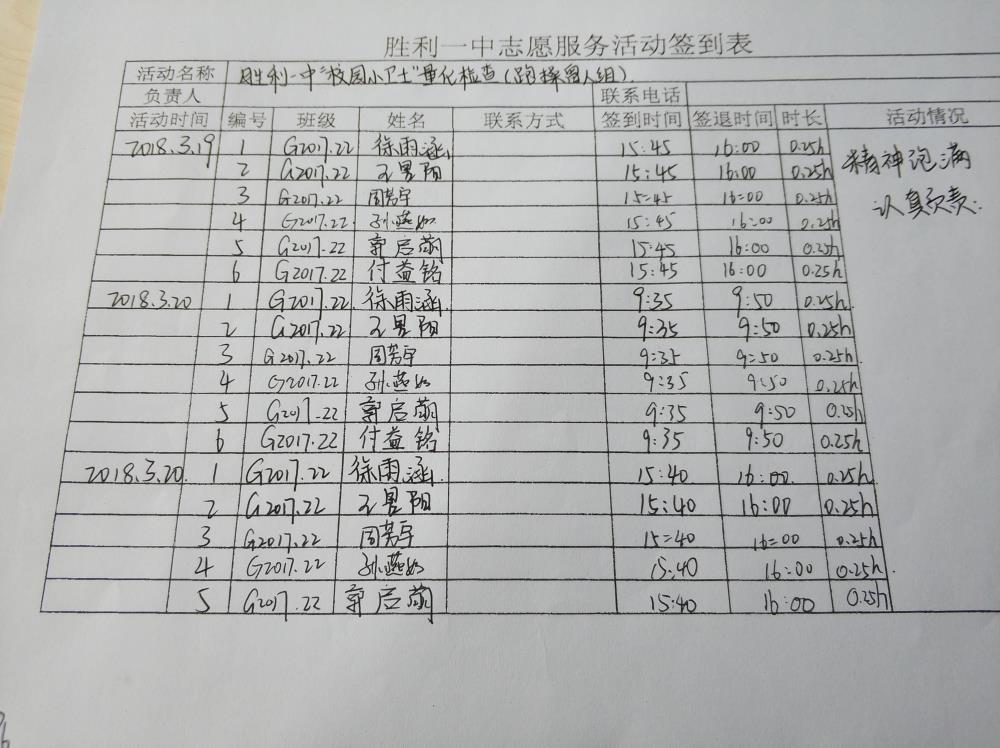 胜利一中志愿服务活动签到表
活动名称 胜利一中"校园小卫士"量化检查(跑操男人组).
负责人 联系电话
活动时间 编号 班级 姓名 联系方式 签到时间 签退时间 时长 活动情况
2018.3.19 1 G2017.22 徐雨涵 15:45 16:00 0.25h 精神饱满
2 G2017.22 王昱阳 15:45 16:00 0.25h
3 G2017.22 周芳宇 15:45 16:00 0.25h 认真负责.
4 G2017.22 孙燕如 15:45 16:00 0.25h
5 G2017.22 郭启萌 15:45 16:00 0.25h
6 G2017.22 付益铭 15:45 16:00 0.25h
2018.3.20 1 G2017.22 徐雨涵 9:35 9:50 0.25h
2 G2017.22 王昱阳 9:35 9:50 0.25h
3 G2017.22 周芳宇 9:35 9:50 0.25h
4 G2017.22 孙燕如 9:35 9:50 0.25h
5 G2017.22 郭启萌 9:35 9:50 0.25h
6 G2017.22 付益铭 9:35 9:50 0.25h
2018.3.20. 1 G2017.22 徐雨涵 15:40 16:00. 0.25h
2 G2017.22 王昱阳 15:40 16:00 0.25h
3 G2017.22 周芳宇 15:40 16:00 0.25h
4 G2017.22 孙燕如 15:40 16:00 0.25h.
5 G2017.22 郭启萌 15:40 16:00 0.25h